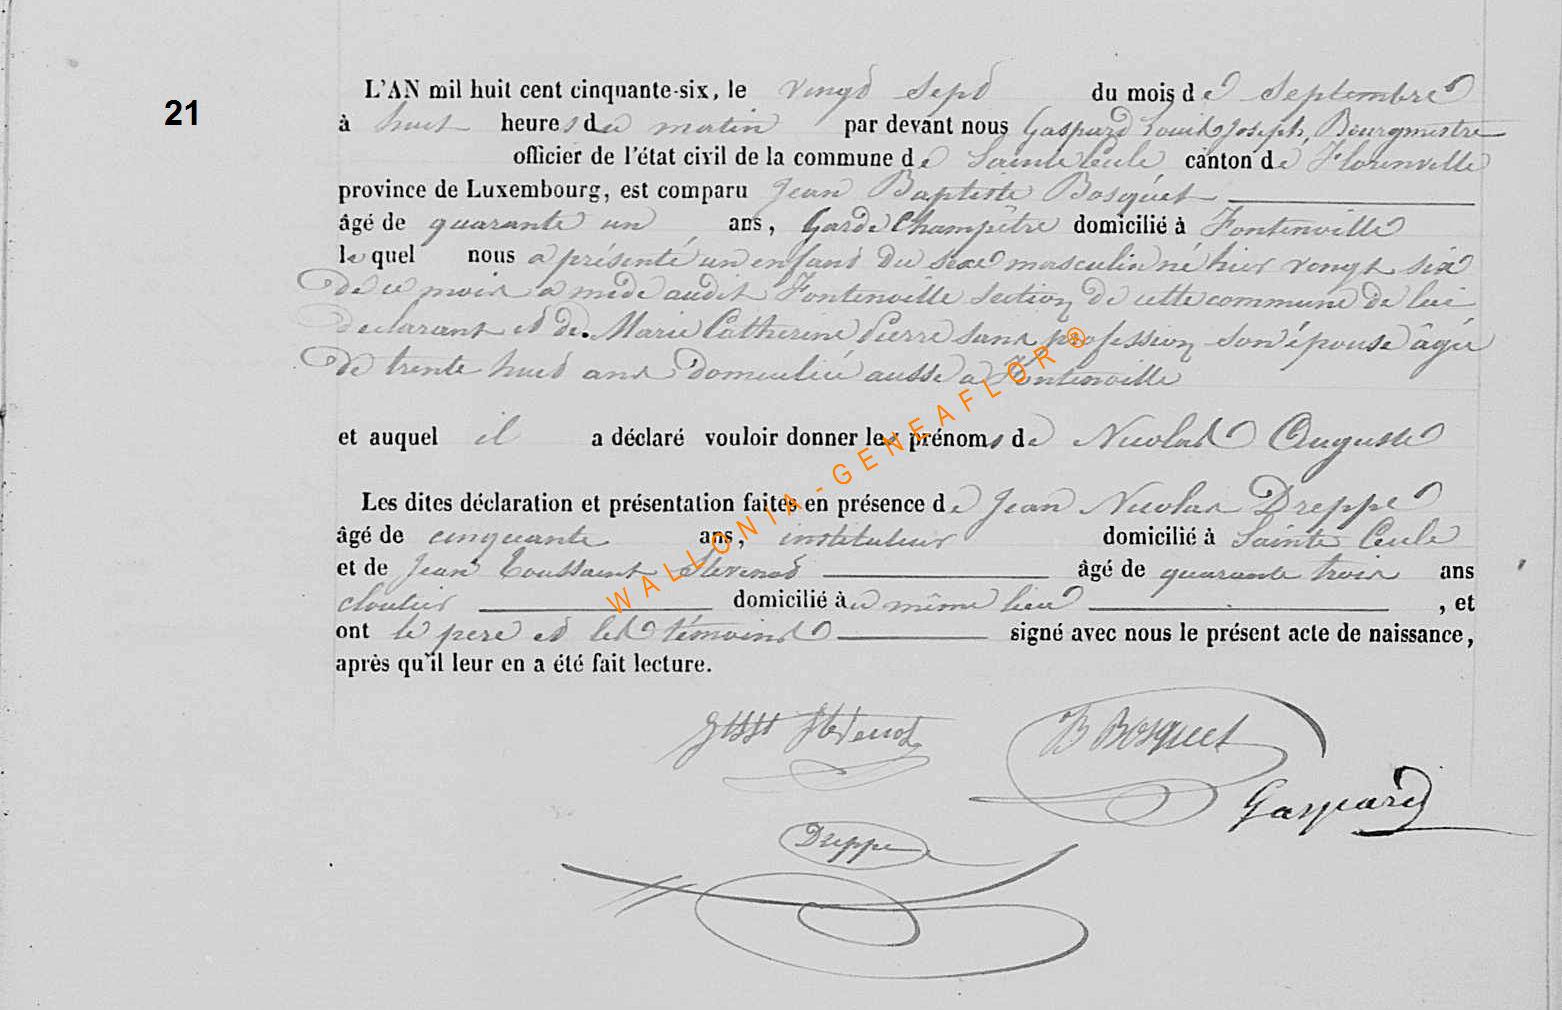 21
L'AN mil huit cent cinquante-six, le vingt sept du mois de Septembre
à huit heures du matin par devant nous Gaspard Louis Joseph, Bourgmestre
officier de l'état civil de la commune de Sainte Cécile canton de Florenville
province de Luxembourg, est comparu Jean Baptiste Bosquet
âgé de quarante un ans, Garde Champêtre domicilié à Fontenoille
le quel nous a présenté un enfant du sexe masculin né hier vingt six
de ce mois a midi audit Fontenoille section de cette commune de lui
declarant et de Marie Catherine Pierre sans profession son épouse âgée
de trente huit ans domiciliée aussi a Fontenoille
et auquel il a déclaré vouloir donner les prénoms de Nicolas Auguste
Les dites déclaration et présentation faites en présence de Jean Nicolas Dreppe
âgé de cinquante ans, instituteur domicilié à Sainte Cécile
et de Jean Toussaint Stevenot âgé de quarante trois ans
cloutier domicilié au même lieu , et
ont le pere et les témoins signé avec nous le présent acte de naissance,
après qu'il leur en a été fait lecture.
Stevenot B Bosquet
Gaspard
Dreppe
WALLONIA-GENEAFLOR®